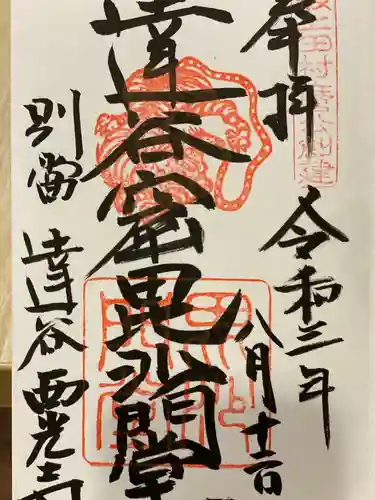 坂上田村麿公創建
奉拝
令和三年
八月
達谷窟毘沙門堂
別當
達谷西光寺